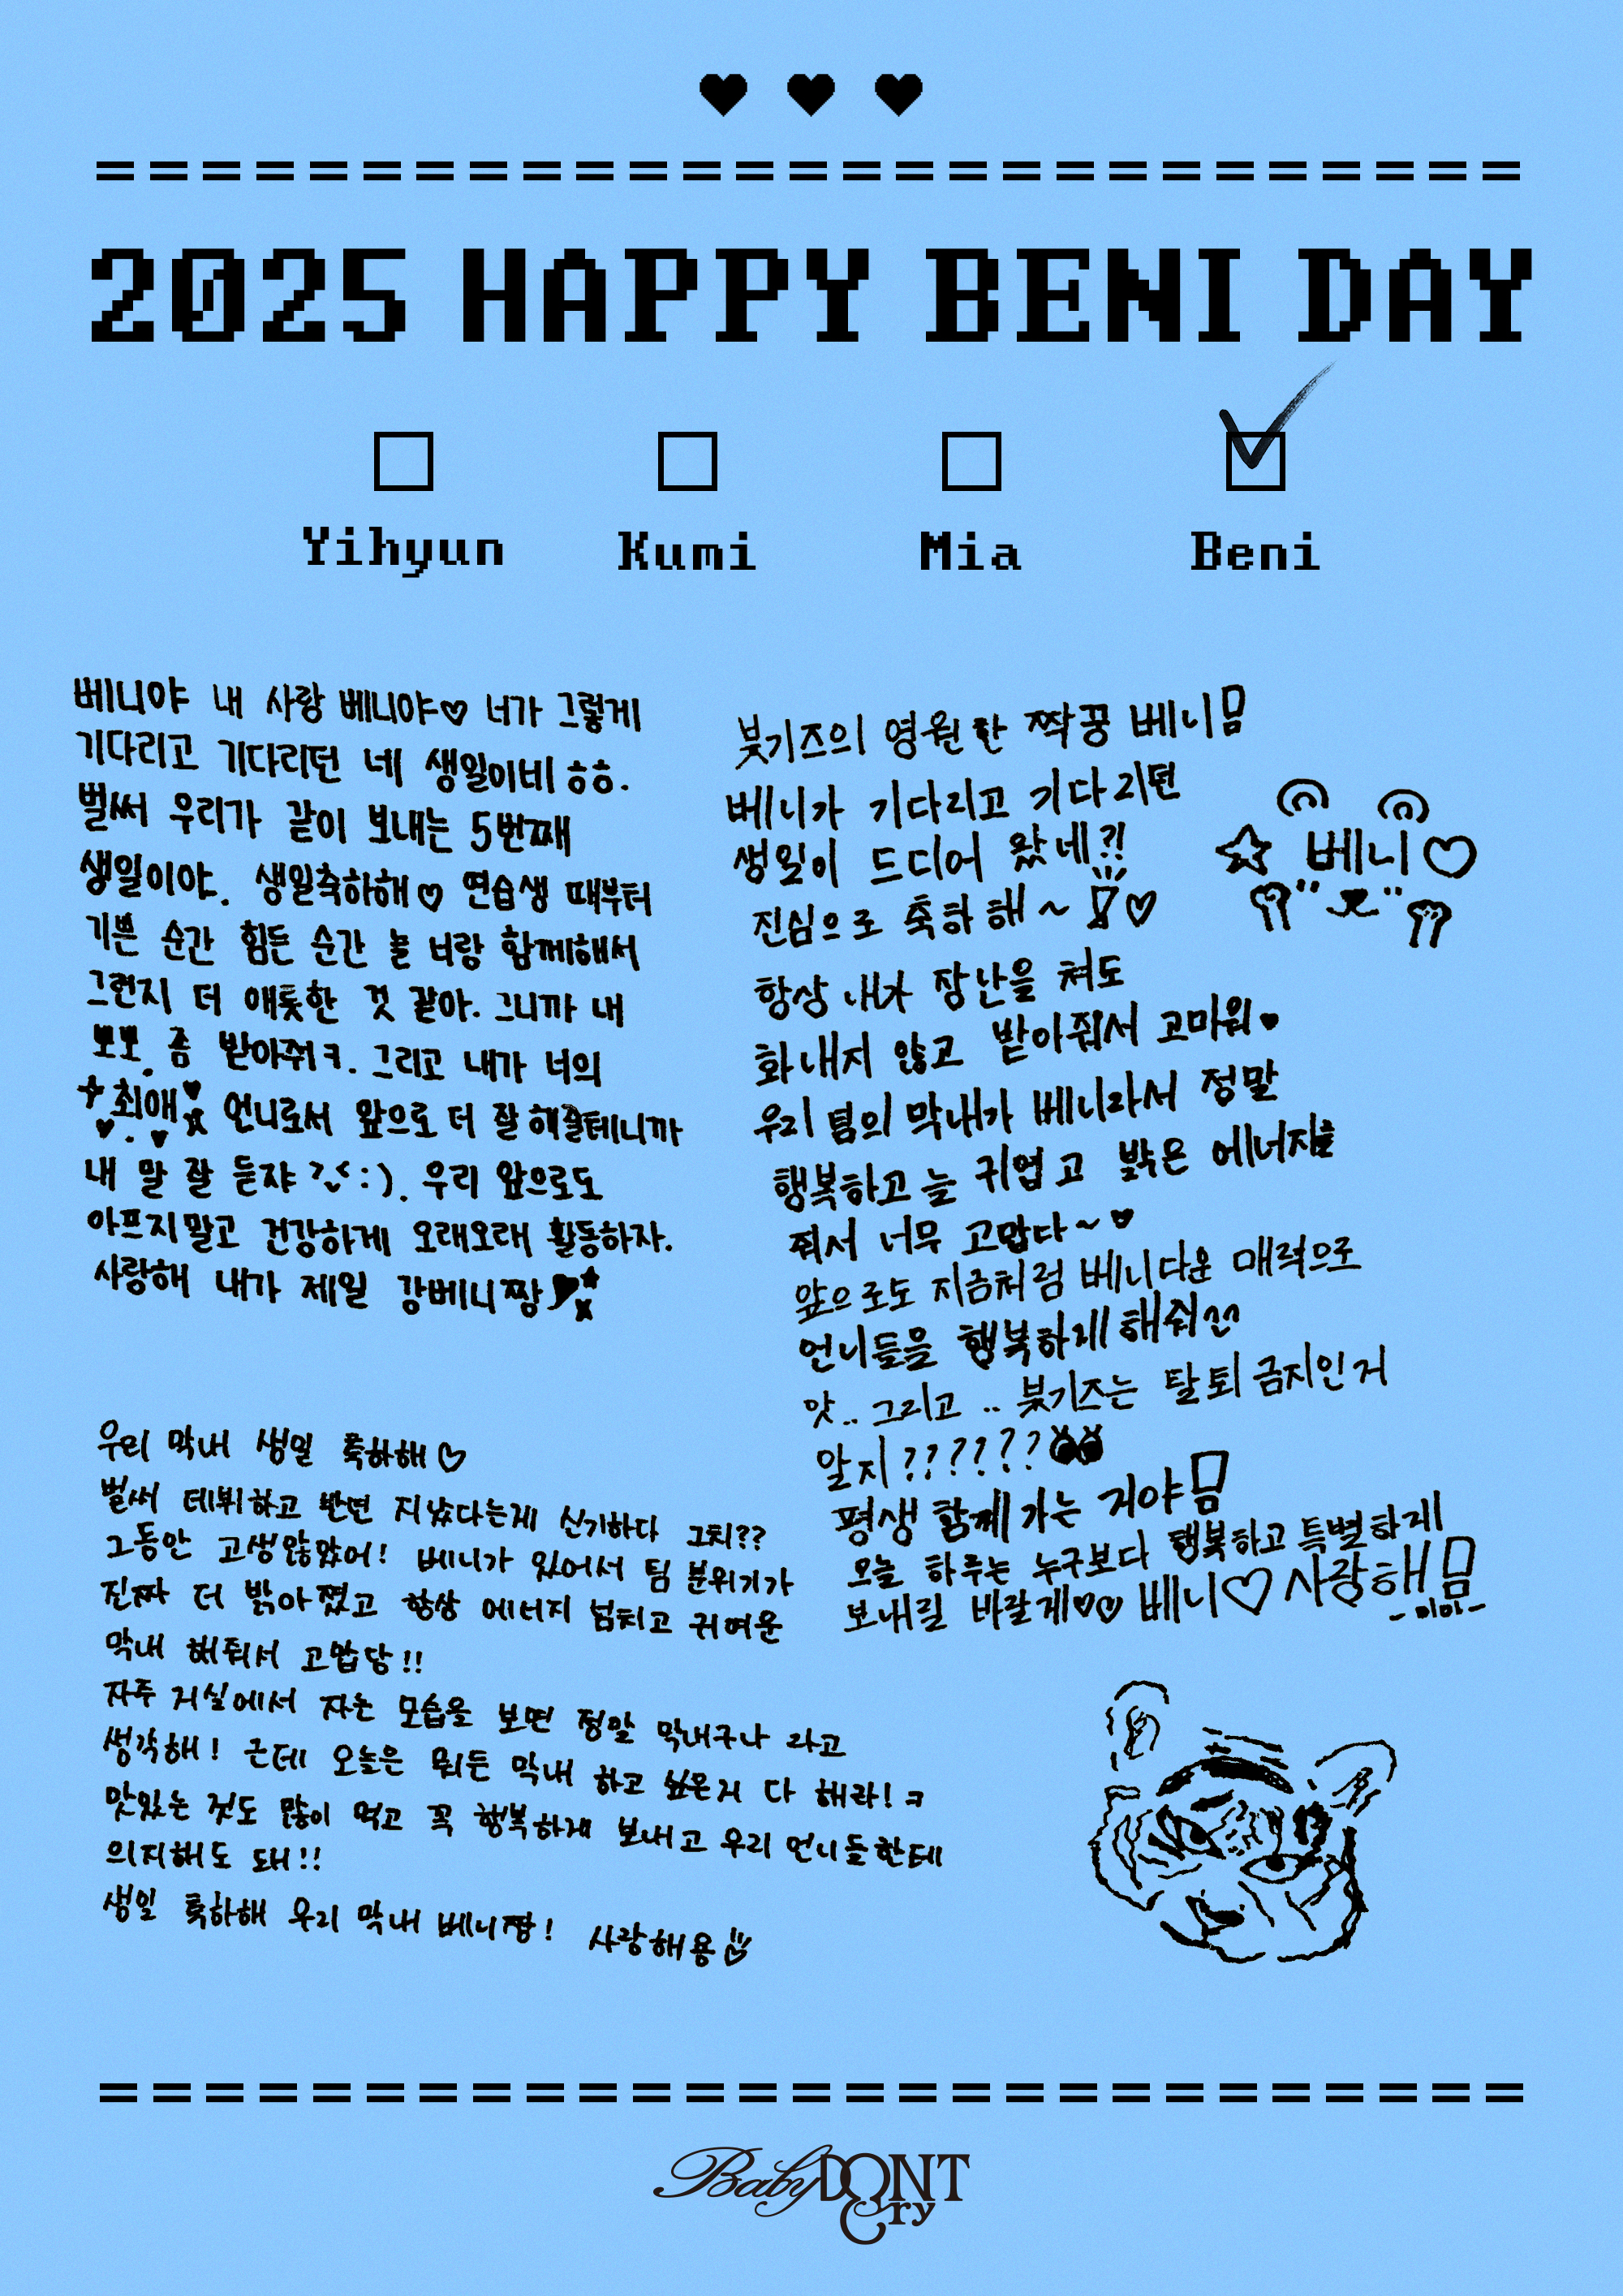 2025 HAPPY BENI DAY
Yihyun Kumi Mia Beni
베니야 내 사랑 베니야♡ 너가 그렇게
기다리고 기다리던 네 생일이네 ㅎㅎ.
벌써 우리가 같이 보내는 5번째
생일이야. 생일축하해♡ 연습생 때부터
기쁜 순간 힘든 순간 늘 너랑 함께해서
그런지 더 애틋한 것 같아. 그니까 내
뽀뽀 좀 받아줘ㅋ. 그리고 내가 너의
최애 언니로서 앞으로 더 잘 해줄테니까
내 말 잘 듣쟈 :). 우리 앞으로도
아프지말고 건강하게 오래오래 활동하자.
사랑해 내가 제일 강베니짱
붗기즈의 영원한 짝꿍 베니
베니가 기다리고 기다리던
생일이 드디어 왔네?!
진심으로 축하해~ ♡
항상 내가 장난을 쳐도
화내지 않고 받아줘서 고마워♥
우리 팀의 막내가 베니라서 정말
행복하고 늘 귀엽고 밝은 에너지를
줘서 너무 고맙다~♥
앞으로도 지금처럼 베니다운 매력으로
언니들을 행복하게 해줘
앗.. 그리고 .. 붗기즈는 탈퇴 금지인거
알지??????
평생 함께 가는 거야
오늘 하루는 누구보다 행복하고 특별하게
보내길 바랄게♥♡ 베니♡ 사랑해
-미아-
☆ 베니♡
우리 막내 생일 축하해♡
벌써 데뷔하고 반년 지났다는게 신기하다 그치??
그동안 고생많았어! 베니가 있어서 팀 분위기가
진짜 더 밝아졌고 항상 에너지 넘치고 귀여운
막내 해줘서 고맙당!!
자주 거실에서 자는 모습을 보면 정말 막내구나 라고
생각해! 근데 오늘은 뭐든 막내 하고 싶은거 다 해라!ㅋ
맛있는 것도 많이 먹고 꼭 행복하게 보내고 우리 언니들한테
의지해도 돼!!
생일 축하해 우리 막내 베니짱! 사랑해용
Baby DONT Cry